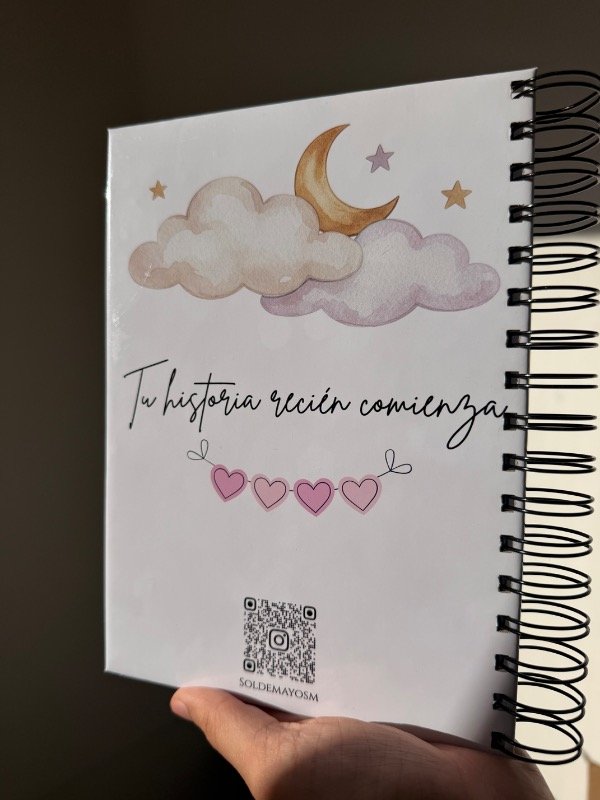 Tu historia recién comienza
SOLDEMAYOSM